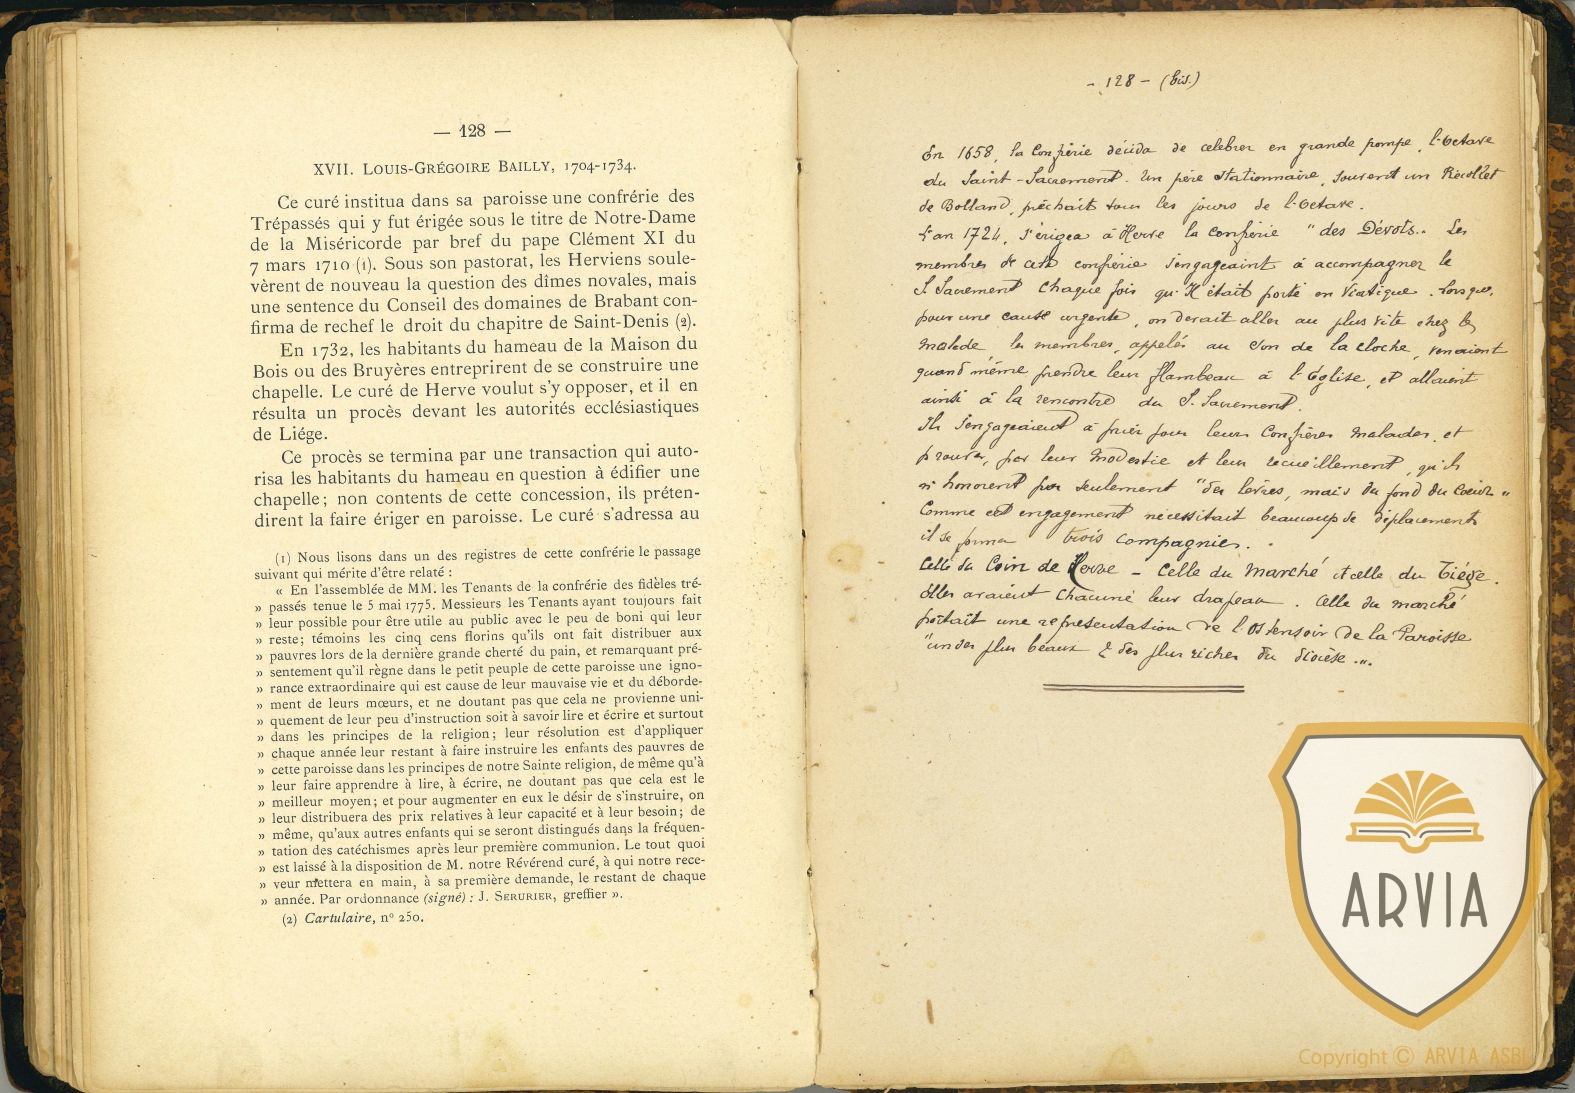 — 128 —
XVII. Louis-Grégoire Bailly, 1704-1734.
Ce curé institua dans sa paroisse une confrérie des
Trépassés qui y fut érigée sous le titre de Notre-Dame
de la Miséricorde par bref du pape Clément XI du
7 mars 1710 (1). Sous son pastorat, les Herviens soule-
vèrent de nouveau la question des dîmes novales, mais
une sentence du Conseil des domaines de Brabant con-
firma de rechef le droit du chapitre de Saint-Denis (2).
En 1732, les habitants du hameau de la Maison du
Bois ou des Bruyères entreprirent de se construire une
chapelle. Le curé de Herve voulut s'y opposer, et il en
résulta un procès devant les autorités ecclésiastiques
de Liége.
Ce procès se termina par une transaction qui auto-
risa les habitants du hameau en question à édifier une
chapelle; non contents de cette concession, ils préten-
dirent la faire ériger en paroisse. Le curé s'adressa au
(1) Nous lisons dans un des registres de cette confrérie le passage
suivant qui mérite d'être relaté :
« En l'assemblée de MM. les Tenants de la confrérie des fidèles tré-
» passés tenue le 5 mai 1775. Messieurs les Tenants ayant toujours fait
» leur possible pour être utile au public avec le peu de boni qui leur
» reste; témoins les cinq cens florins qu'ils ont fait distribuer aux
» pauvres lors de la dernière grande cherté du pain, et remarquant pré-
» sentement qu'il règne dans le petit peuple de cette paroisse une igno-
» rance extraordinaire qui est cause de leur mauvaise vie et du déborde-
» ment de leurs mœurs, et ne doutant pas que cela ne provienne uni-
» quement de leur peu d'instruction soit à savoir lire et écrire et surtout
» dans les principes de la religion; leur résolution est d'appliquer
» chaque année leur restant à faire instruire les enfants des pauvres de
» cette paroisse dans les principes de notre Sainte religion, de même qu'à
» leur faire apprendre à lire, à écrire, ne doutant pas que cela est le
» meilleur moyen; et pour augmenter en eux le désir de s'instruire, on
» leur distribuera des prix relatives à leur capacité et à leur besoin; de
» même, qu'aux autres enfants qui se seront distingués dans la fréquen-
» tation des catéchismes après leur première communion. Le tout quoi
» est laissé à la disposition de M. notre Révérend curé, à qui notre rece-
» veur mettera en main, à sa première demande, le restant de chaque
» année. Par ordonnance (signé) : J. Serurier, greffier ».
(2) Cartulaire, n° 250.
- 128 - (bis.)
En 1658, la Confrérie décida de celebrer en grande pompe, l'Octave
du Saint-Sacrement. Un père stationnaire, souvent un Récollet
de Bolland, prêchait tous les jours de l'Octave.
L'an 1724, s'érigea à Herve la confrérie "des Dévots". Les
membres de cette confrérie s'engageaient à accompagner le
S. Sacrement chaque fois qu'Il était porté en Viatique. Lorsque,
pour une cause urgente, on devait aller au plus vite chez le
malade, les membres, appelés au son de la cloche, venaient
quand même prendre leur flambeau à l'Eglise, et allaient
ainsi à la rencontre du S. Sacrement.
Ils s'engageaient à prier pour leurs Confrères malades, et
prouver, par leur modestie et leur recueillement, qu'ils
n'honorent pas seulement "des lèvres, mais du fond du cœur"
Comme cet engagement nécessitait beaucoup de déplacements
il se forma trois compagnies.
Celle du Coin de Herve - Celle du Marché et celle du Tiége.
Elles avaient chacune leur drapeau. Celle du marché
portait une représentation de l'Ostensoir de la Paroisse
"un des plus beaux & des plus riches du diocèse."
ARVIA
Copyright © ARVIA ASBL